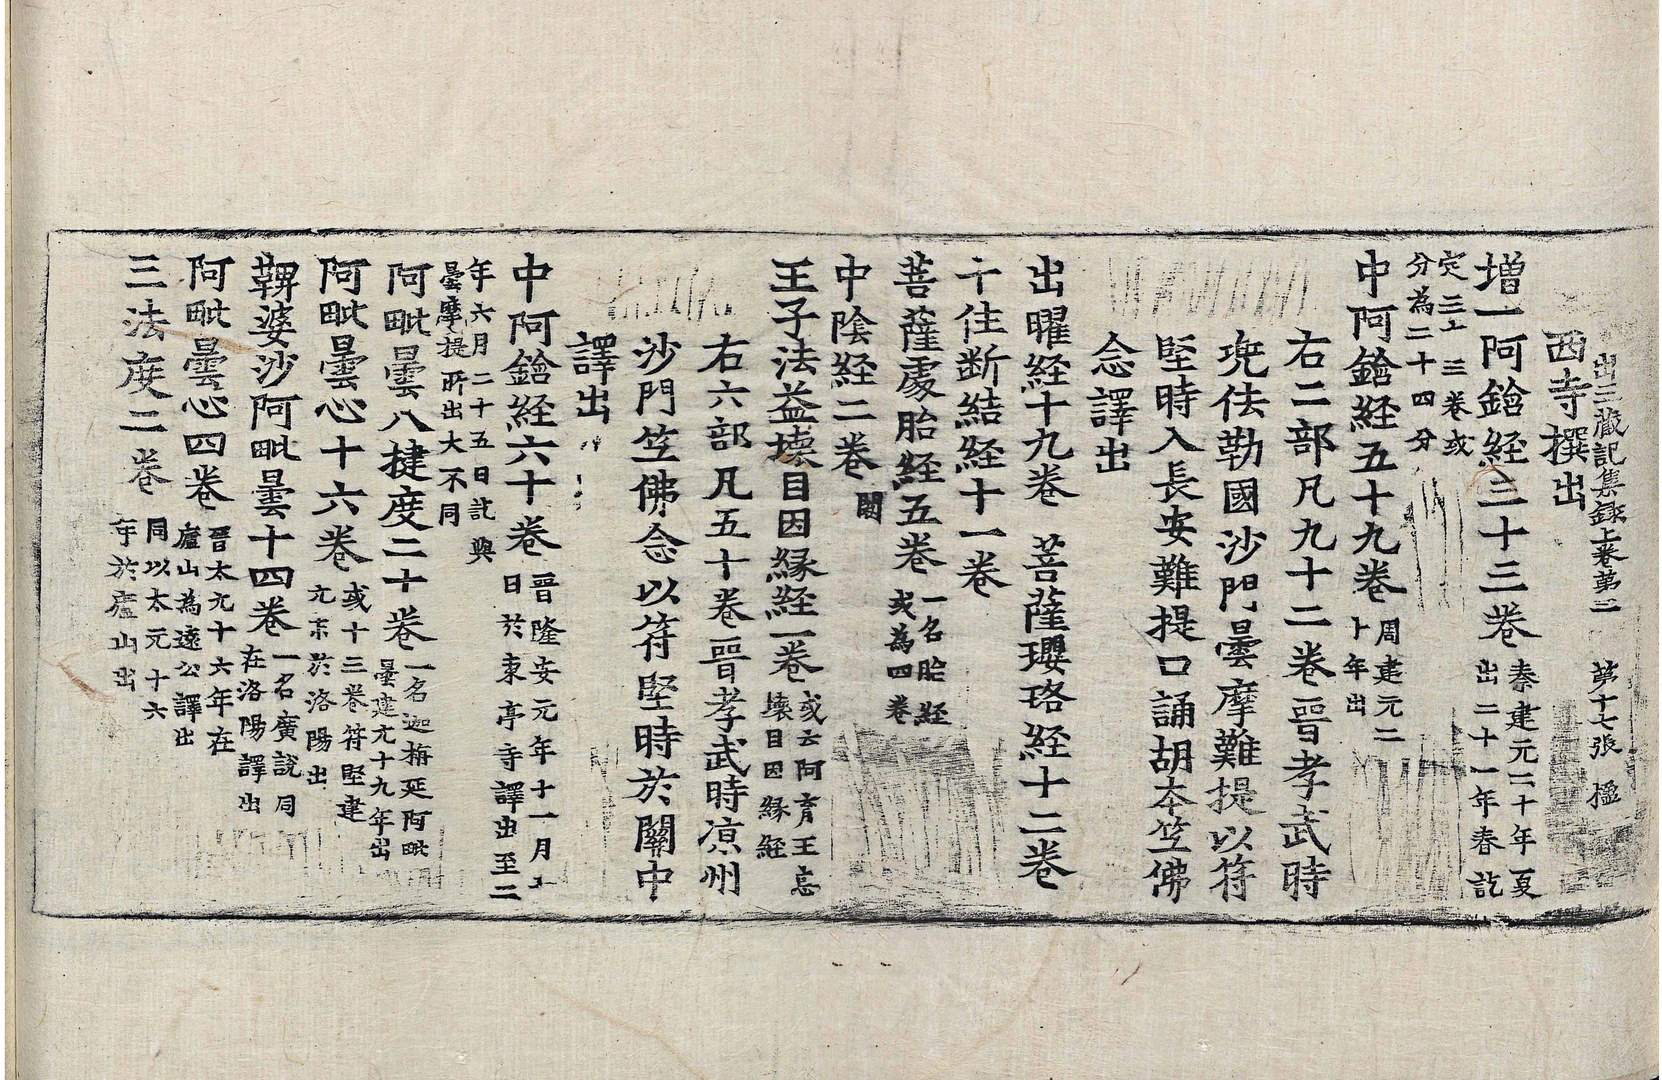 出三藏記集録上卷第二　第十七張　楹
西寺撰出
増一阿鋡経三十三卷
秦建元二十年夏
出二十一年春訖
定三十三卷或
分為二十四分
中阿鋡経五十九卷
周建元二
十年出
右二部凡九十二卷晉孝武時
兠佉勒國沙門曇摩難提以符
堅時入長安難提口誦胡夲笁佛
念譯出
出曜経十九卷　菩薩瓔珞経十二卷
十住断結経十一卷
菩薩處胎経五卷
一名胎経
或為四卷
中陰経二卷
闕
王子法益壊目因縁経一卷
或云阿育王息
壊目因縁経
右六部凡五十卷晉孝武時凉州
沙門笁佛念以符堅時於關中
譯出
中阿鋡経六十卷
晉隆安元年十一月十
日於東亭寺譯出至二
年六月二十五日訖與
曇摩提所出大不同
阿毗曇八揵度二十卷
一名迦栴延阿毗
曇建元十九年出
阿毗曇心十六卷
或十三卷符堅建
元末於洛陽出
鞞婆沙阿毗曇十四卷
一名廣説同
在洛陽譯出
阿毗曇心四卷
晉太元十六年在
廬山為遠公譯出
三法度二卷
同以太元十六
年於廬山出